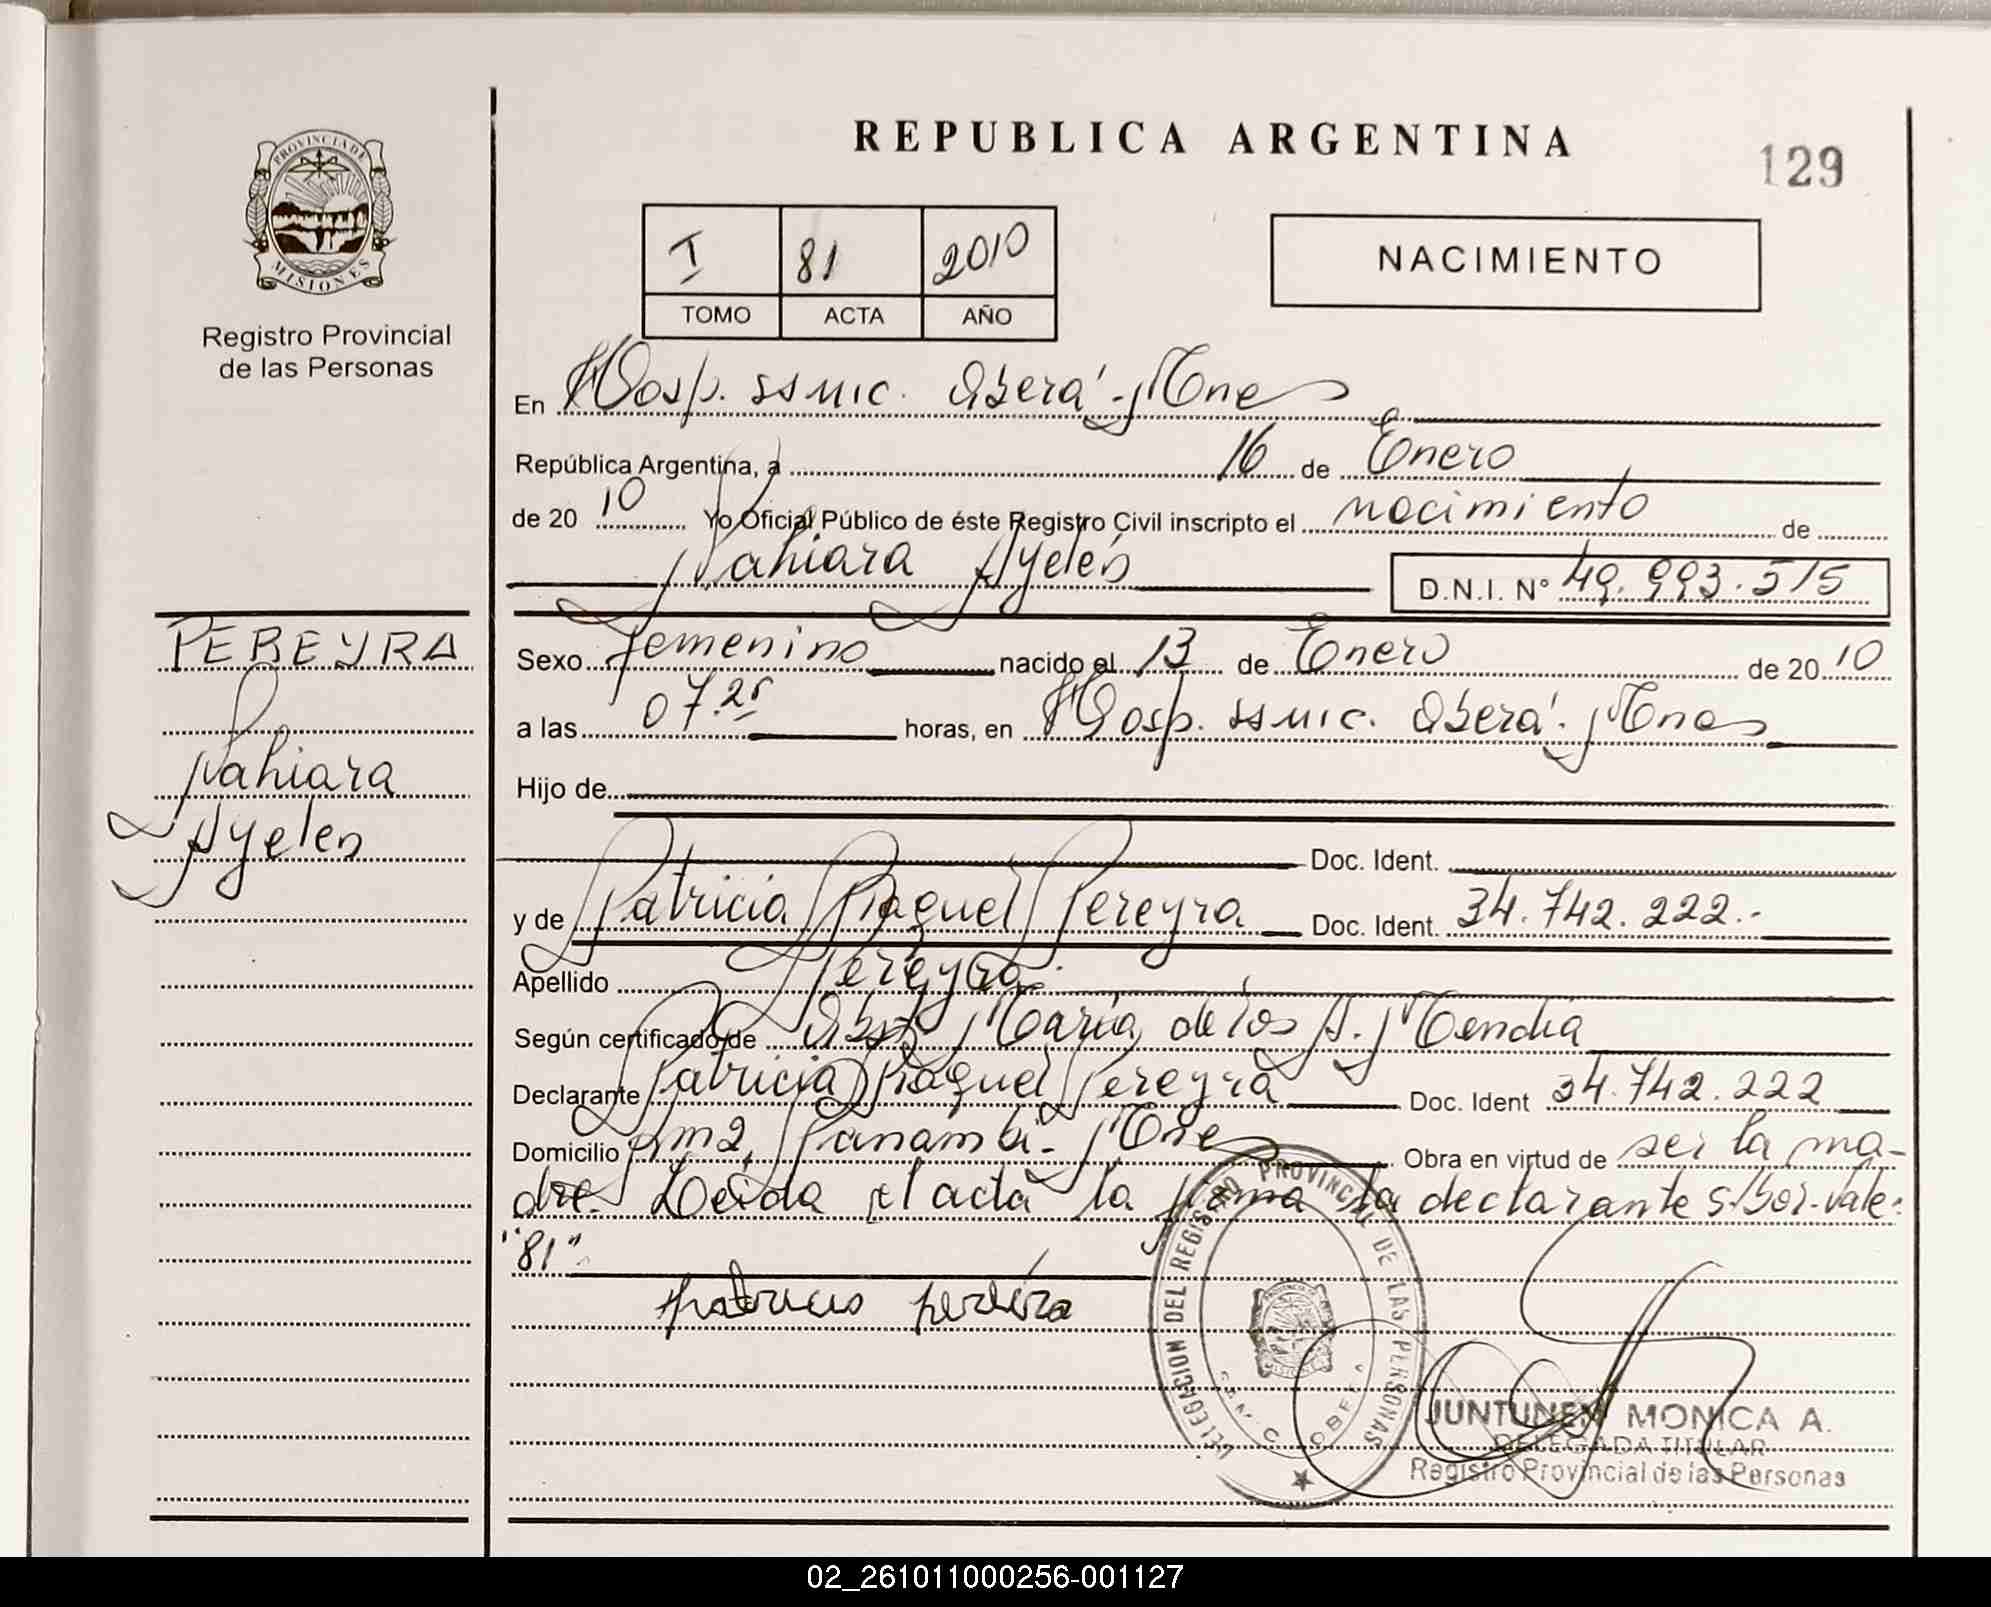 REPUBLICA ARGENTINA
129
PROVINCIA DE
MISIONES
Registro Provincial
de las Personas
I 81 2010
TOMO ACTA AÑO
NACIMIENTO
En Hosp. ssmic. Oberá - Mnes
República Argentina, a 16 de Enero
de 2010 Yo Oficial Público de éste Registro Civil inscripto el nacimiento de
Nahiara Ayelén
D.N.I. Nº 49.993.515
PEREYRA
Nahiara
Ayelen
Sexo femenino nacido el 13 de Enero de 2010
a las 07.25 horas, en Hosp. ssmic. Oberá - Mnes
Hijo de
Doc. Ident.
y de Patricia Raquel Pereyra Doc. Ident. 34.742.222.-
Apellido Pereyra.
Según certificado de Obst. María de los A. Mendia
Declarante Patricia Raquel Pereyra Doc. Ident 34.742.222
Domicilio Panambi - Mnes Obra en virtud de ser la ma-
dre. Leída el acta la firma la declarante s/bor. vale:
"81"
DELEGACION DEL REGISTRO PROVINCIAL DE LAS PERSONAS
JUNTUNEN MONICA A.
DELEGADA TITULAR
Registro Provincial de las Personas
02_261011000256-001127